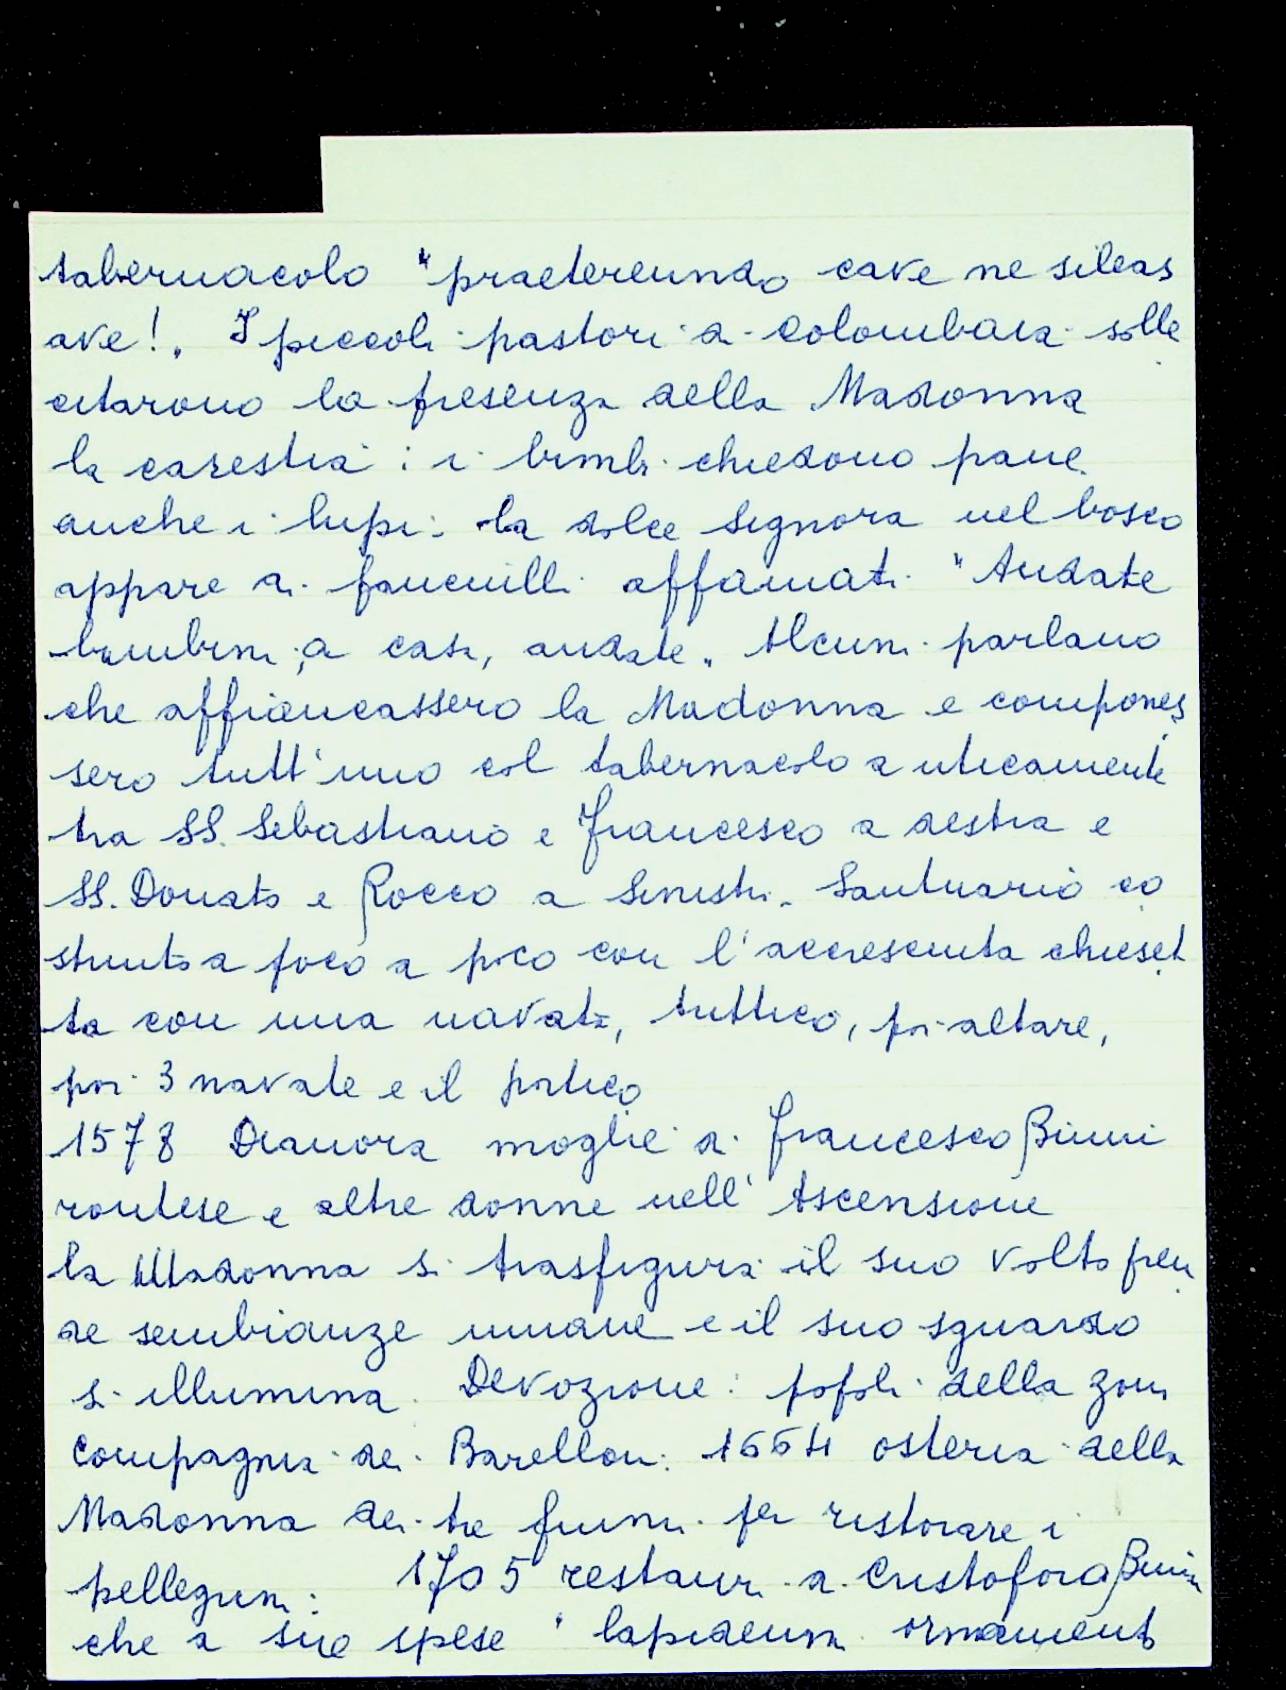 tabernacolo "praetereundo cave ne sileas
ave!". I piccoli pastori di Colombaia solle
citarono la presenza della Madonna
la carestia: i bimbi chiedono pane
anche i lupi: la dolce Signora nel bosco
appare ai fanciulli affamati "Andate
bambini, a casa, andate". Alcuni parlano
che affiancassero la Madonna e compones
sero tutt'uno col tabernacolo anticamente
tra SS. Sebastiano e Francesco a destra e
SS. Donato e Rocco a sinistra. Santuario co
struito a poco a poco con l'accresciuta chieset
ta con una navata, trittico, poi altare,
poi 3 navate e il portico
1578 Dianora moglie di Francesco Binni
rontese e altre donne nell'Ascensione
la Madonna si trasfigura il suo volto pren
de sembianze umane e il suo sguardo
si illumina. Devozione: popoli della zona
Compagnia dei Barelloni: 1664 osteria della
Madonna dei tre fiumi per ristorare i
pellegrini: 1705 restauri di Cristoforo
che a sue spese "lapideum ornamento